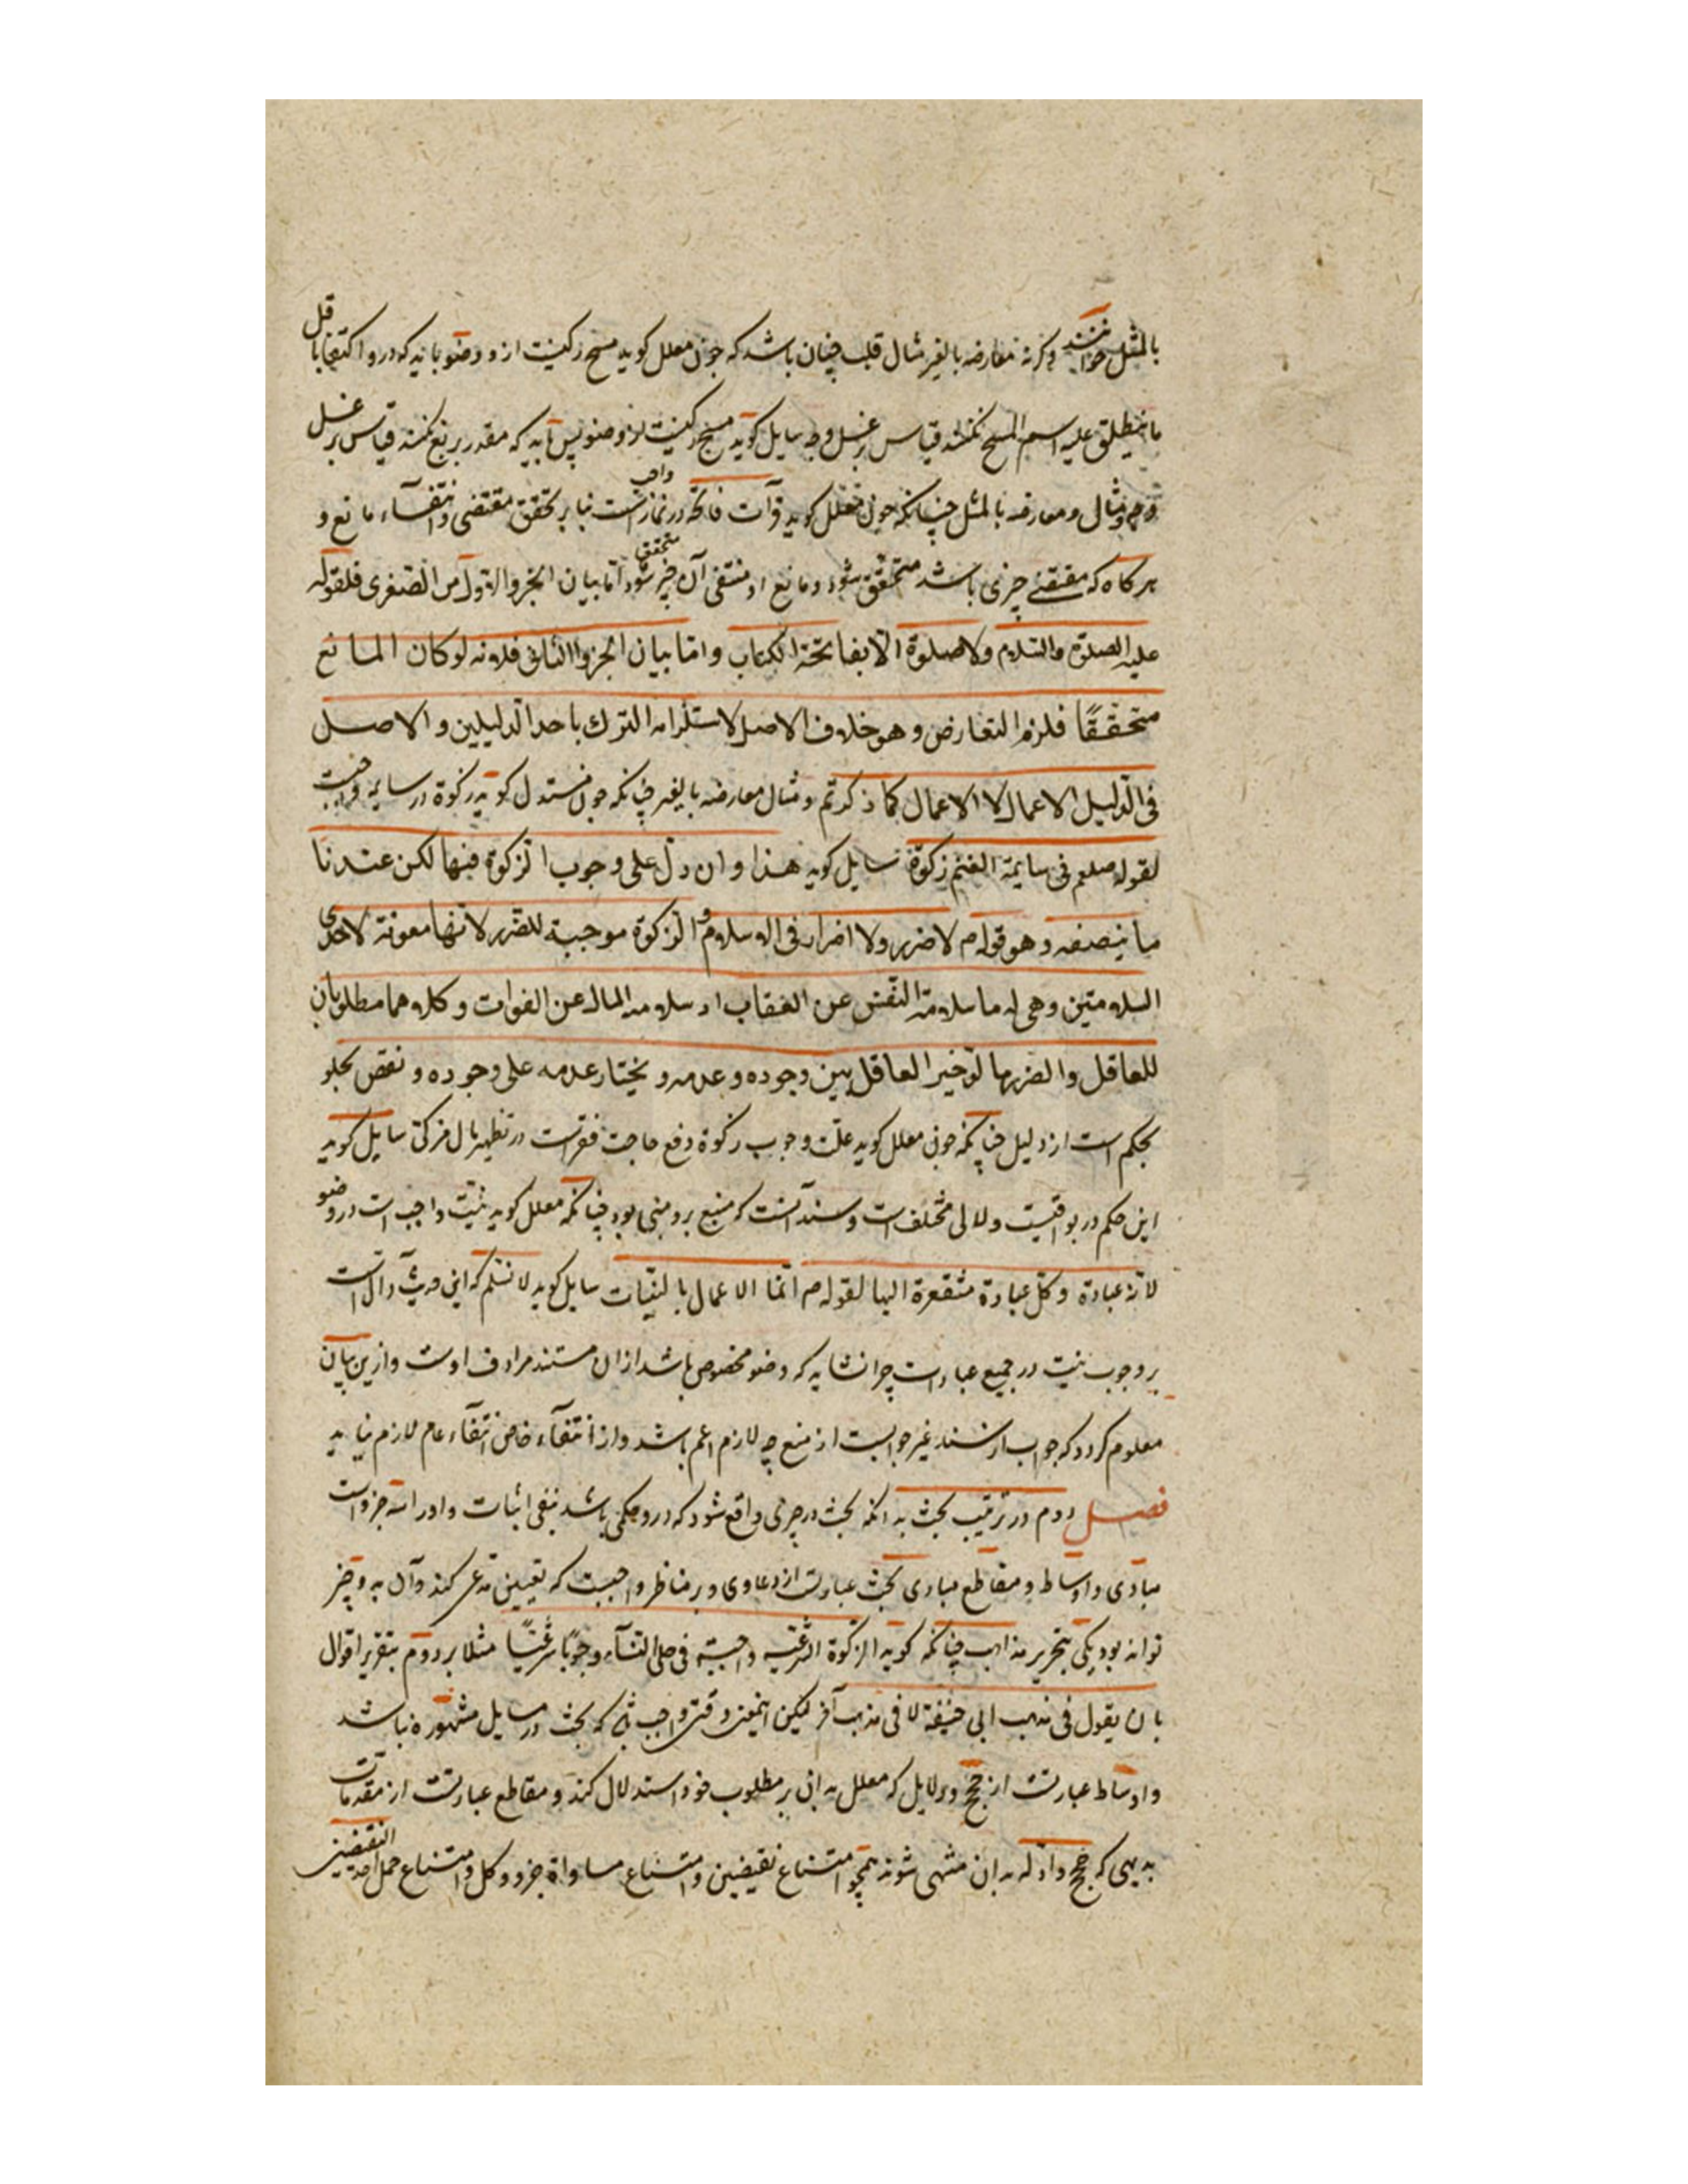 بالمثل خوانند وگرنه معارضه بالغیر مثال قلب چنان باشد که چون معلل کوید مسح رکنیست از وضو باید که درو اکتفا باقل
ما ینطلق علیه اسم المسح نکنند قیاس بر غسل وجه سایل کوید مسح رکنیست از وضو پس باید که مقدر بربع نکنند قیاس بر غسل
وجه ومثال ومعارضه بالمثل چنانکه چون معلل کوید قرآت فاتحه در نماز واجب است بنا بر تحقق مقتضی وانتفآء مانع و
هرکاه که مقتضئ چیزی باشد متحقق شود ومانع او منتفی آن چیز متحقق شود اما بیان الجزو الاول من الصغری فلقوله
علیه الصلوة والسلام ولا صلوة الا بفاتحة الکتاب واما بیان الجزو الثانی فلانه لو کان المانع
متحققًا فلزم التعارض وهو خلاف الاصل لاستلزامه الترك باحد الدلیلین والاصل
فی الدلیل الاعمال لا الاعمال کما ذکرتم ومثال معارضه بالغیر چنانکه چون مستدل کوید زکوة در سایمه واجبست
لقوله صلعم فی سایمة الغنم زکوة سایل کوید هذا وان دل علی وجوب الزکوة فیها لکن عندنا
ما ینصفه وهو قوله م لا ضرر ولا اضرار فی الاسلام و الزکوة موجبة للضرر لانها معونة لاحدی
السلامتین وهی له ما سلامة النفس عن العقاب او سلامة المال عن الفوات وکلاهما مطلوبان
للعاقل والضرر ما لو خیر العاقل بین وجوده وعدمه ویختار عدمه علی وجوده ونقض تخلو
بحکم است از دلیل چنانکه چون معلل کوید علت وجوب زکوة دفع حاجت فقرست در تطهیر مال مزکی سایل کوید
این حکم در یواقیت ولالی مختلف است وسند آنست که منع برو مبنی بود چنانکه معلل کوید نیت واجب است در وضو
لانه عبادة وکل عبادة مفتقرة الیها لقوله م انما الاعمال بالنیات سایل کوید لا نسلم که این حدیث دال است
بر وجوب نیت در جمیع عبادات چرا نشاید که وضو مخصوص باشد ازان مستند مرادف اوست وازین بیان
معلوم کردد که جواب از سند غیر جوابست از منع چه لازم اعم باشد واز انتفآء خاص انتفآء عام لازم نیاید
فصل دوم در ترتیب بحث بدانکه بحث در چیزی واقع شود که درو حکمی باشد بنفی اثبات واورا سه جزو است
مبادی واوساط ومقاطع مبادی بحث عبارتست از دعاوی وبر مناظر واجبست که تعیین مدعی کند وآن بدو چیز
تواند بود یکی بتحریر مذاهب چنانکه کوید الزکوة الشرعیه واجبة فی حلی النسآء وجوبًا شرعیًا مثلا بر دوم بتقریر اقوال
بان یقول فی مذهب ابی حنیفة لا فی مذهب آخر لیکن اینمعنی وقتی واجب که بحث در مسایل مشهوره نباشد
واوساط عبارتست از حجج ودلایل که معلل بدان بر مطلوب خود استدلال کند ومقاطع عبارتست از مقدمات
بدیهی که حجج وادله بدان منتهی شوند همچو امتناع نقیضین وامتناع مساواة جزو وکل وامتناع حمل احد النقیضین